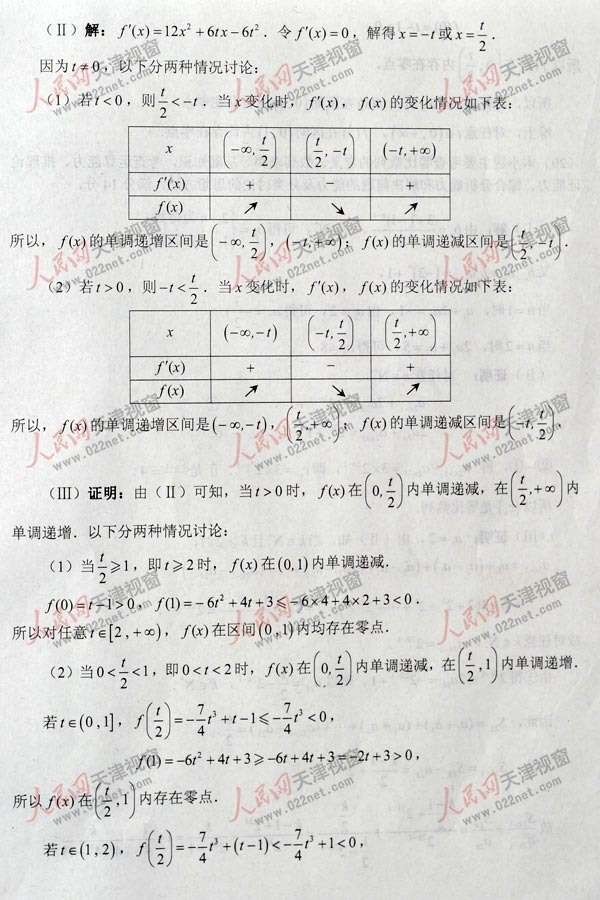 （Ⅱ）解：f′(x)=12x²+6tx−6t²．令f′(x)=0，解得x=−t或x=t/2．
因为t≠0，以下分两种情况讨论：
（1）若t<0，则t/2<−t．当x变化时，f′(x)，f(x)的变化情况如下表：
x (−∞, t/2) (t/2, −t) (−t,+∞)
f′(x) + − +
f(x) ↗ ↘ ↗
所以，f(x)的单调递增区间是(−∞, t/2)，(−t,+∞)；f(x)的单调递减区间是(t/2, −t)．
（2）若t>0，则−t<t/2．当x变化时，f′(x)，f(x)的变化情况如下表：
x (−∞,−t) (−t, t/2) (t/2, +∞)
f′(x) + − +
f(x) ↗ ↘ ↗
所以，f(x)的单调递增区间是(−∞,−t)，(t/2, +∞)；f(x)的单调递减区间是(−t, t/2)．
（Ⅲ）证明：由（Ⅱ）可知，当t>0时，f(x)在(0, t/2)内单调递减，在(t/2, +∞)内
单调递增．以下分两种情况讨论：
（1）当t/2⩾1，即t⩾2时，f(x)在(0,1)内单调递减．
f(0)=t−1>0，f(1)=−6t²+4t+3⩽−6×4+4×2+3<0．
所以对任意t∈[2,+∞)，f(x)在区间(0,1)内均存在零点．
（2）当0<t/2<1，即0<t<2时，f(x)在(0, t/2)内单调递减，在(t/2, 1)内单调递增．
若t∈(0,1]，f(t/2)=−7/4t³+t−1⩽−7/4t³<0，
f(1)=−6t²+4t+3⩾−6t+4t+3=−2t+3>0，
所以f(x)在(t/2, 1)内存在零点．
若t∈(1,2)，f(t/2)=−7/4t³+(t−1)<−7/4t³+1<0，
人民网天津视窗
www.022net.com